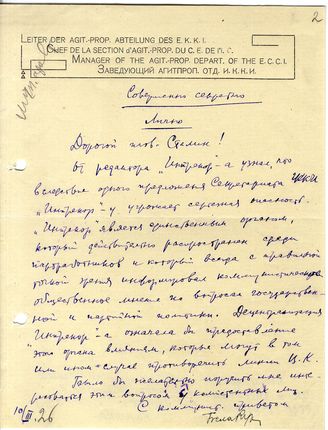 2
LEITER DER AGIT.-PROP. ABTEILUNG DES E. K. K. I.
CHEF DE LA SECTION D'AGIT.-PROP. DU C. E. DE
MANAGER OF THE AGIT.-PROP. DEPART. OF THE E. C. C. I.
ЗАВЕДУЮЩИЙ АГИТПРОП. ОТД. И. К. К. И.
Совершенно секретно
Лично
Дорогой тов. Сталин!
От редактора "Инпрекор"-а узнал, что
вследствие одного предложения Секретариата ИККИ
"Инпрекор"-у угрожает серьезная опасность.
"Инпрекор" является единственным органом,
который действительно распространен среди
партработников и который всегда с правильной
точки зрения информировал коммунистическое
общественное мнение по вопросам государствен-
ной и партийной политики. Децентрализация
"Инпрекор"-а означала бы предоставление
этого органа влияниям, которые могут в том
или ином случае противоречить линии Ц.К.
Было бы желательно поручить мне
этого вопроса
С коммунист. приветом
10/III.26